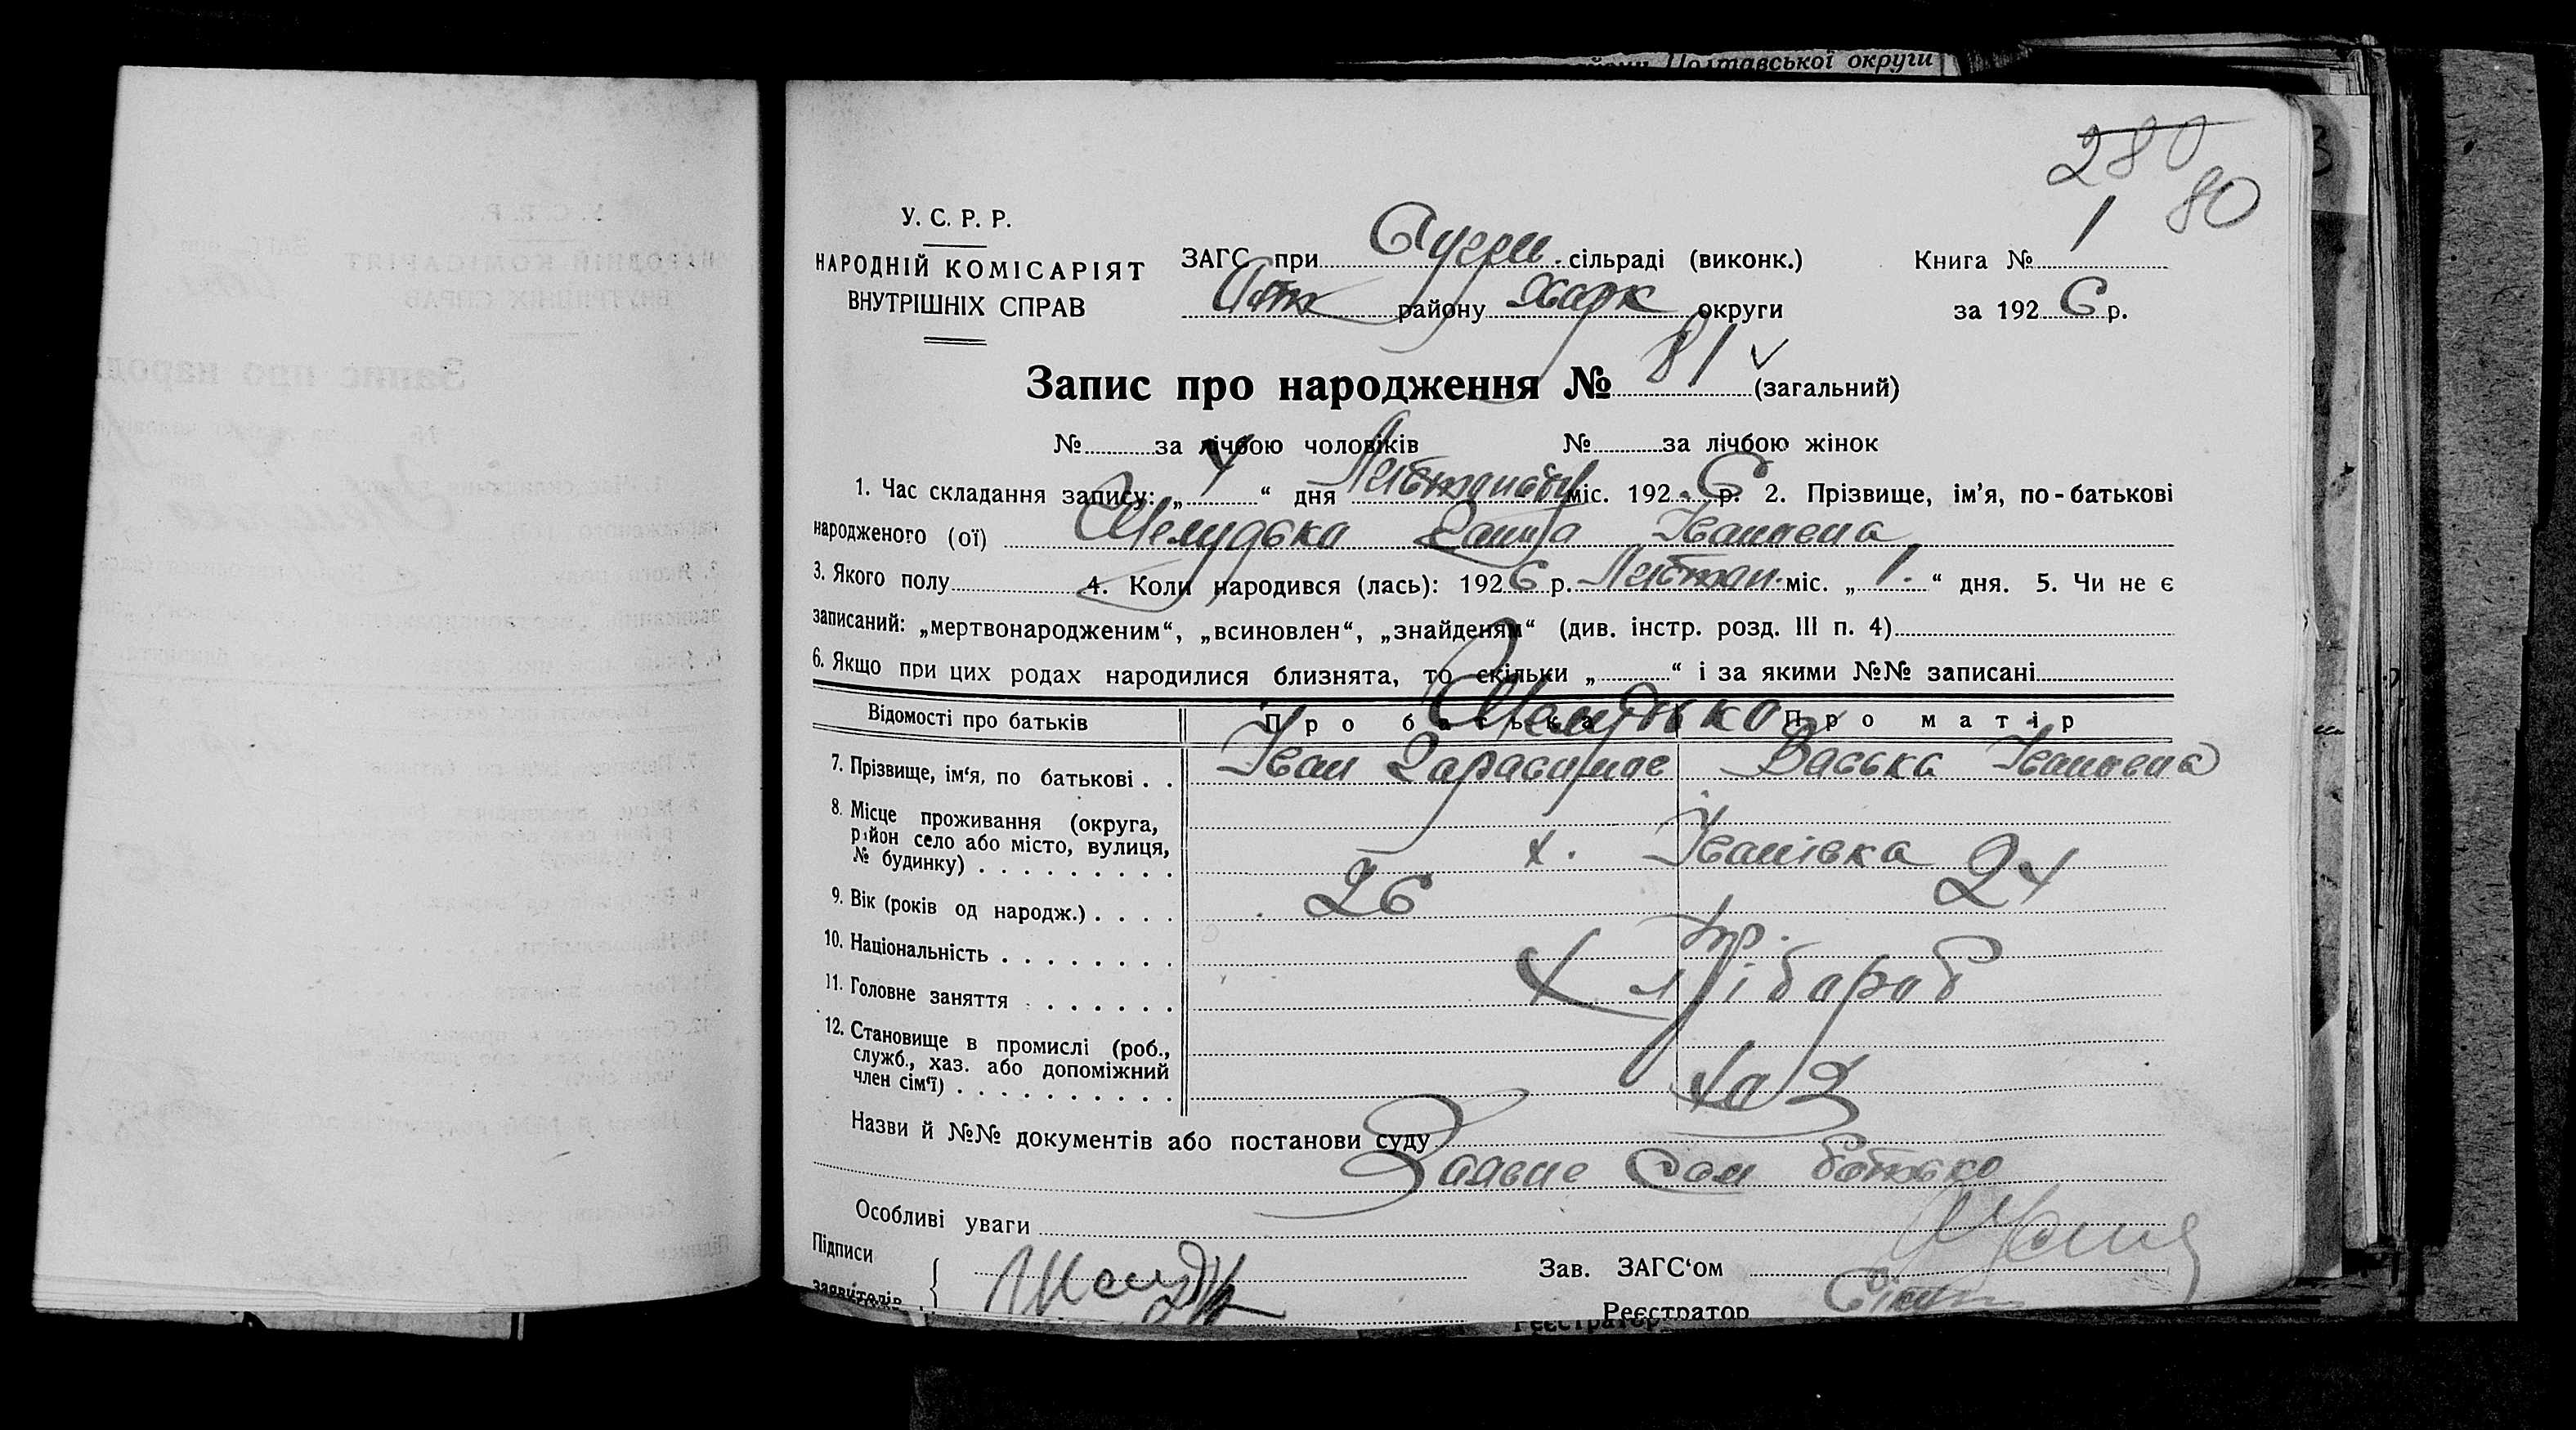 Полтавської округи
280
80
У. С. Р. Р.
НАРОДНІЙ КОМІСАРІЯТ
ВНУТРІШНІХ СПРАВ
ЗАГС при сільраді (виконк.)
району Харк округи
Книга № 1
за 1926 р.
Запис про народження № 81 (загальний)
№ за лічбою чоловіків № за лічбою жінок
1. Час складання запису: „ 4 “ дня міс. 192 6 р. 2. Прізвище, ім’я, по-батькові
народженого (ої) Ганна Івановна
3. Якого полу 4. Коли народився (лась): 1926 р. міс. „ 1. “ дня. 5. Чи не є
записаний: „мертвонародженим“, „всиновлен“, „знайденям“ (див. інстр. розд. III п. 4)
6. Якщо при цих родах народилися близнята, то скільки „ “ і за якими №№ записані
Відомості про батьків Про батька Про матір
7. Прізвище, ім‘я, по батькові . . Іван Васька Івановна
8. Місце проживання (округа,
район село або місто, вулиця,
№ будинку) х. Іванівка
9. Вік (років од народж.) 26 24
10. Національність Укр.
11. Головне заняття Хлібароб
12. Становище в промислі (роб.,
служб., хаз. або допоміжний
член сім‘ї) Хаз
Назви й №№ документів або постанови суду
Заявив Сам батько
Особливі уваги
Підписи
заявителів
Зав. ЗАГС‘ом
Реєстратор